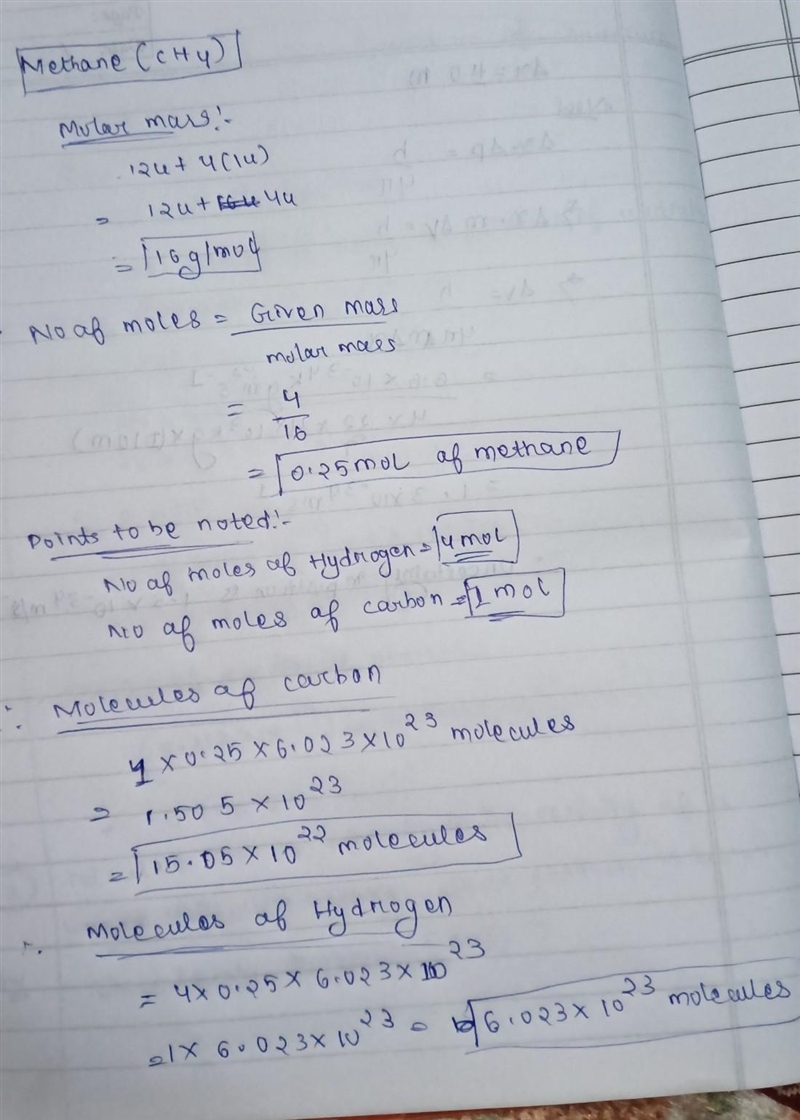 Methane (CH4)
Molar mass:-
12u + 4(1u)
= 12u + 4u
= 16g/mol
No of moles = Given mass
molar mass
= 4
16
= 0.25 mol of methane
Points to be noted:-
No of moles of Hydrogen = 4 mol
No of moles of carbon = 1 mol
∴ Molecules of carbon
1 × 0.25 × 6.023 × 10^23 molecules
= 1.505 × 10^23
= 15.05 × 10^22 molecules
∴ Molecules of Hydrogen
= 4 × 0.25 × 6.023 × 10^23
= 1 × 6.023 × 10^23 = 6.023 × 10^23 molecules